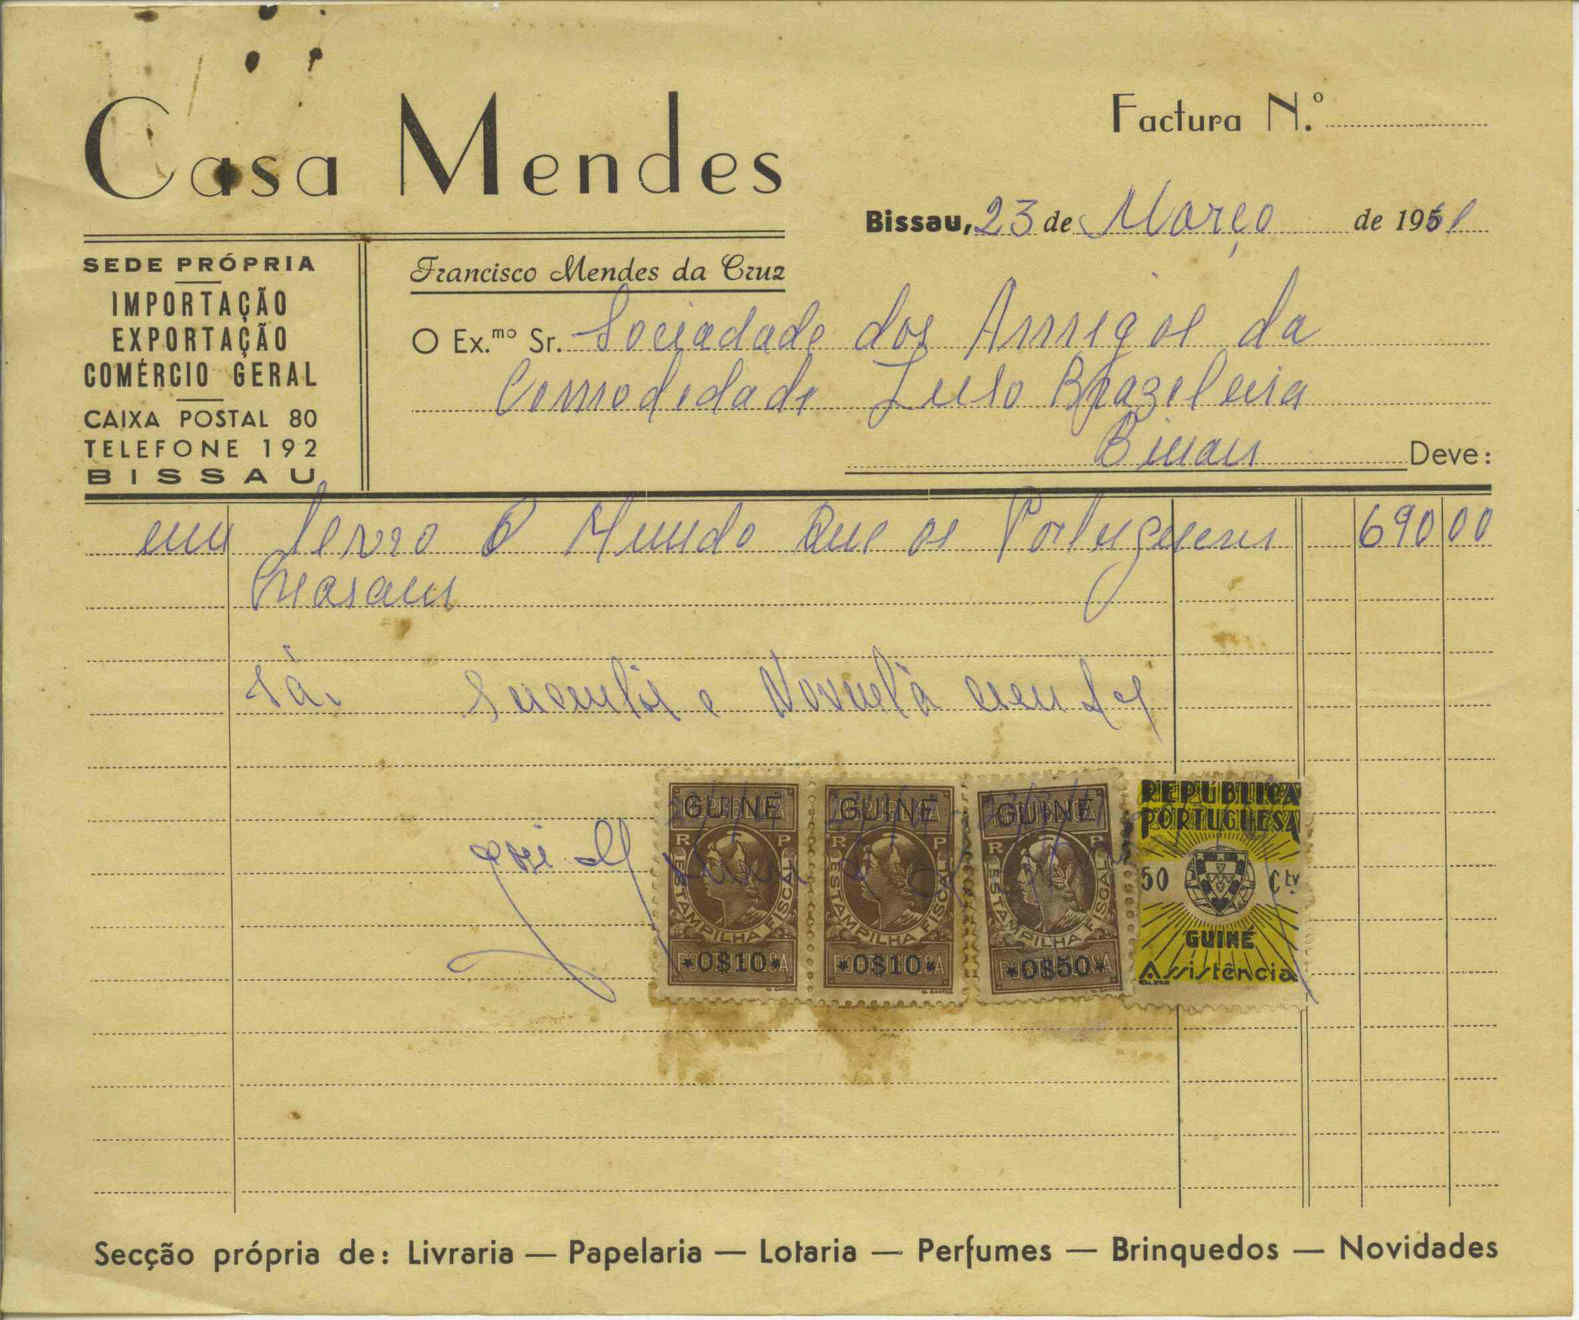 Casa Mendes
Factura N.º
Bissau, 23 de Março de 1961
SEDE PRÓPRIA
IMPORTAÇÃO
EXPORTAÇÃO
COMÉRCIO GERAL
CAIXA POSTAL 80
TELEFONE 192
BISSAU
Francisco Mendes da Cruz
O Ex.mo Sr. Sociadade dos Amigos da
Comodidade Luso Brazeleira
Bissau Deve:
um Livro O Mundo Que os Portugueses 690 00
Criaram
São e Noventa
GUINÉ
R P
ESTAMPILHA FISCAL
*0$10*
GUINÉ
R P
ESTAMPILHA FISCAL
*0$10*
GUINÉ
R P
ESTAMPILHA FISCAL
*0$50*
REPÚBLICA
PORTUGUESA
50 Ctv
GUINÉ
Assistência
José
Secção própria de: Livraria — Papelaria — Lotaria — Perfumes — Brinquedos — Novidades